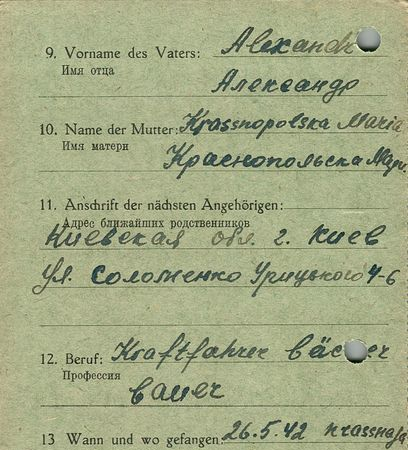 Alexandr
9. Vorname des Vaters:
Имя отца
Александр
10. Name der Mutter: Krassnopolska Maria
Имя матери
Краснопольска Мари
11. Anschrift der nächsten Angehörigen:
Адрес ближайших родственников
Киевская обл. г. Киев
ул. Соломенко Урицького 4-6
12. Beruf: Kraftfahrer bäcker
Профессия
bauer
13 Wann und wo gefangen: 26.5.42 Krassnaja